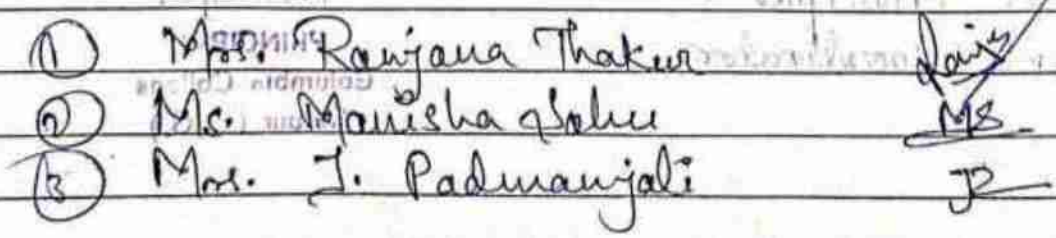 ① Mrs. Ranjana Thakur
② Ms. Manisha Sahu MS
③ Mrs. J. Padmanjali JP